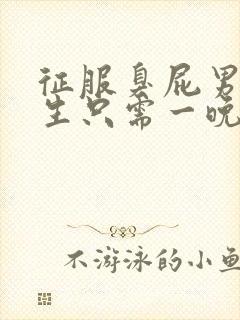 征服臭屁男
生只需一晚
不游泳的小鱼